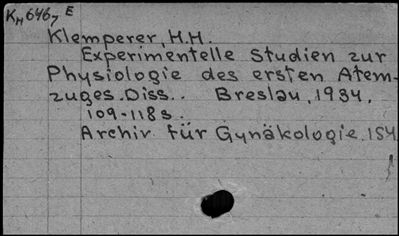 KH6467 E
Klemperer, H.H.
Experimentelle Studien zur
Physiologie des ersten Atem-
zuges. Diss.. Breslau, 1934.
109-118 s.
Archiv für Gynäkologie, 154